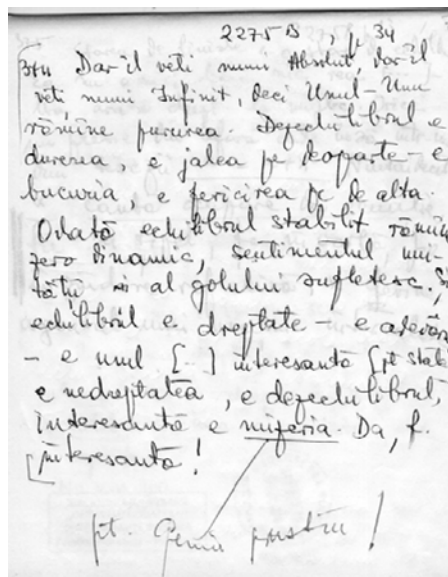 2275 B, f. 34
Dar-îl veți numi Absolut, dar-îl
veți numi Infinit, deci Unul – Unu
rămîne pururea. Dezechilibrul e
durerea, e jalea pe deoparte – e
bucuria, e fericirea pe de alta.
Odată echilibrul stabilit rămîn
zero dinamic, sentimentul
al golului sufletesc. Și
echilibrul e dreptate – e adevăr
– e unul [...] interesantă [pt. stat
e nedreptatea, e dezechilibrul,
interesantă e mizeria. Da, f.
interesantă!
pt. Geniu pustiu!